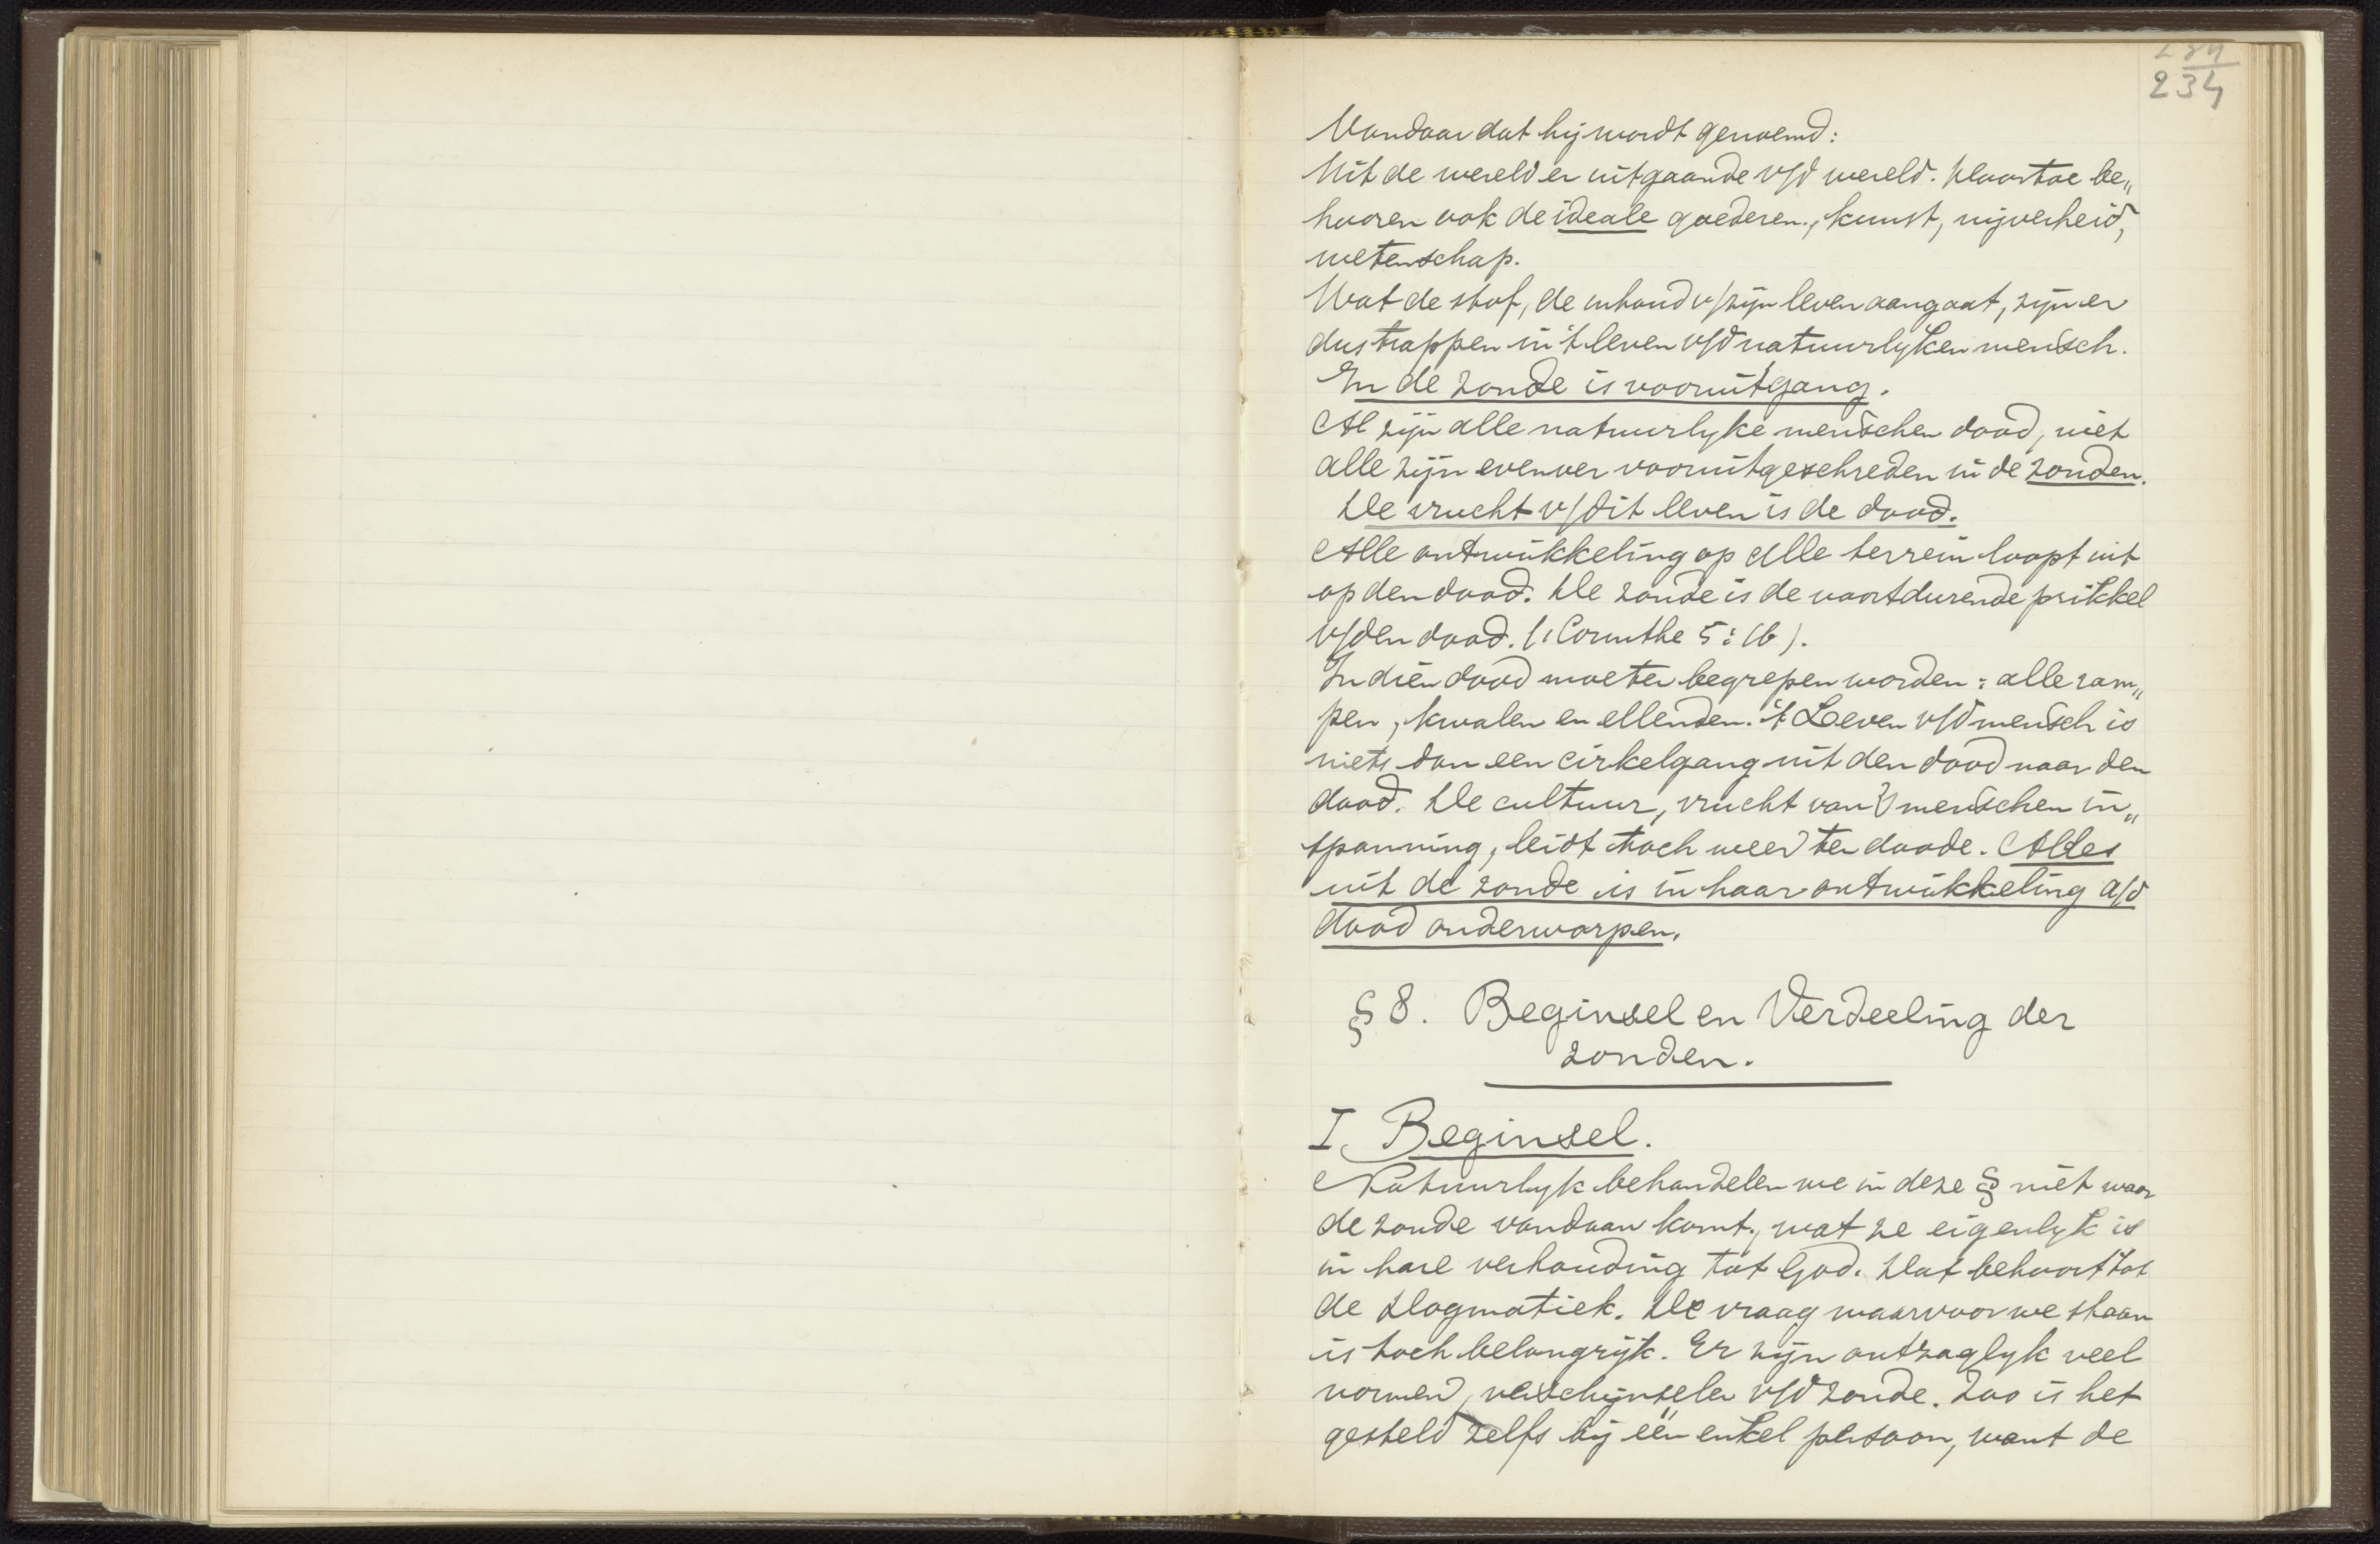 234
Vandaar dat hij wordt genoemd:
Uit de wereld er uitgaande v/d wereld. Daartoe be„
hooren ook de ideale goederen, kunst, nijverheid,
wetenschap.
Wat de stof, de inhoud v/zijn leven aangaat, zijn er
dus trappen in 't leven v/d natuurlyken mensch.
In de zonde is vooruitgang.
Al zijn alle natuurlyke menschen dood, niet
alle zijn evenver vooruitgeschreden in de zonden.
De vrucht v/dit leven is de dood.
Alle ontwikkeling op alle terrein loopt uit
op den dood. De zonde is de voortdurende prikkel
v/den dood. (1 Corinthe 5:16).
In dien dood moeten begrepen worden: alle ram„
pen, kwalen en ellenden. 't Leven v/d mensch is
niets dan een cirkelgang uit den dood naar den
dood. De cultuur, vrucht van menschen in„
spanning, leidt toch weer ten doode. Alles
uit de zonde is in haar ontwikkeling a/d
dood onderworpen.
§ 8. Beginsel en Verdeeling der
zonden.
I. Beginsel.
Natuurlyk behandelen we in deze § niet waar
de zonde vandaan komt, wat ze eigenlyk is
in hare verhouding tot God. Dat behoort tot
de Dogmatiek. De vraag waarvoor we staan
is toch belangrijk. Er zijn ontzaglyk veel
vormen, verschijnselen v/d zonde. Zoo is het
gesteld zelfs bij één enkel persoon, want de